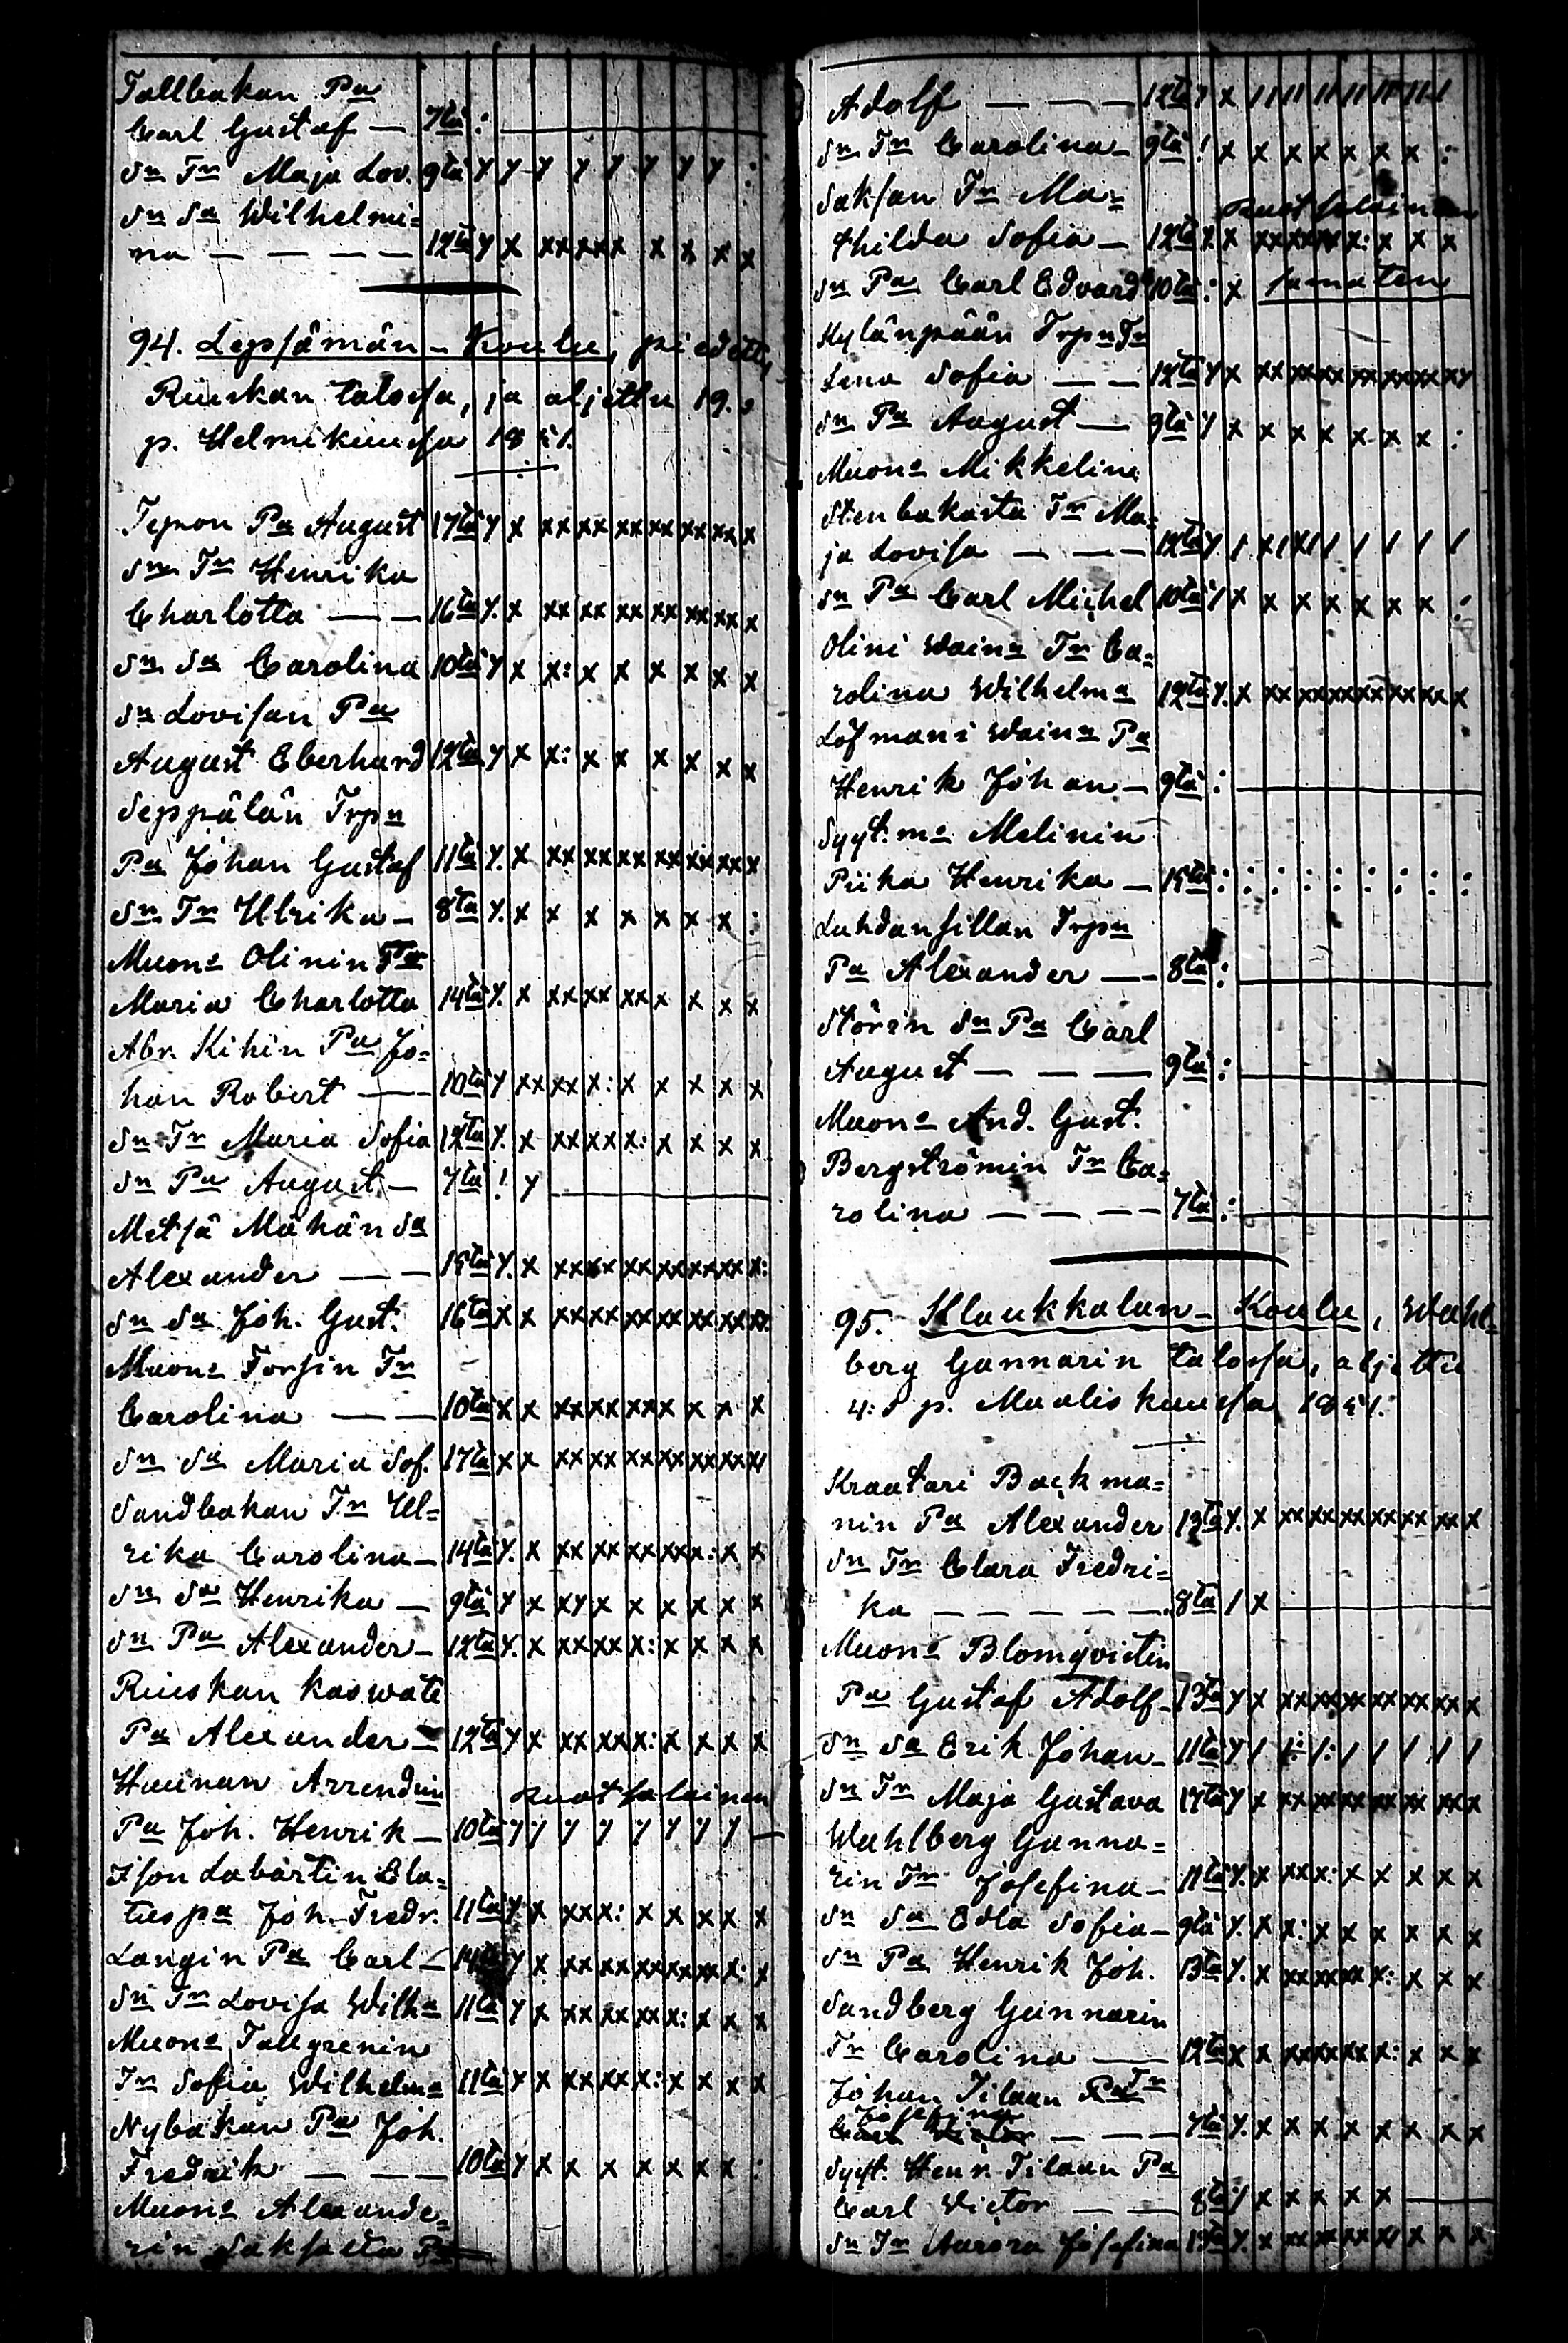 Tallbakan Pa
Carl Gustaf — 7tä :
Sn Tr Maja Lov. 9tä y y y y y y y y :
Sn Sa Wilhelmi=
na — — — — 12tä y x xx xx x x x x x
94. Lepsämän - Koulu, piedetty
Ruuskan talossa, ja aljettu 19.
p. Helmikuussa 1851.
Tepon Pa August 17tä y x xx xx xx xx xx xx x
Sn Tr Henrika
Charlotta — — 16ta y. x xx xx xx xx xx xx x
Sn Sa Carolina 10tä y x x: x x x x x x
Sn Lovisan Pa
August Eberhard 12tä y x x: x x x x x x
Seppälän Trpn
Pa Johan Gustaf 11tä y. x xx xx xx xx xx xx x
Sn Tr Ulrika — 8ta y. x x x x x x x :
Muons Olinin
Maria Charlotta 14tä y. x xx xx xx x x x x
Abr. Kihin Pa Jo=
han Robert — 10tä y xx xx x: x x x x x
Sn Tr Maria Sofia 12tä y. x xx xx x: x x x x
Sn Pa August — 7tä ! y
Metsä Mäkän Sa
Alexander — — 15tä y. x xx xx xx xx xx xx x:
Sn Sa Joh. Gust. 16ta x x xx xx xx xx xx xx xx
Muons Forsin Tr
Carolina — — 10tä x x xx xx xx x x x x
Sn Sa Maria Sof. 17tä x x xx xx xx xx xx xx xx
Sandbakan Tr Ul=
rika Carolina — 14tä y. x xx xx xx xx x: x x
Sn Sa Henrika — 9tä y x xy x x x x x x
Sn Pa Alexander — 12tä y. x xx xx x: x x x x
Ruuskan kaswati
Pa Alexander — 12tä y x xx xx x: x x x x
Huunan Arrendin ruotsalainen
Pa Joh. Henrik — 10tä y y y y y y y y —
Ison Labärtin Ela=
tuspa Joh. Fredr. 11tä y. x xx x: x x x x x
Langin Pa Carl — 14tä y x xx xx xx xx xx x: x
Sn Tr Lovisa Wilha 11tä y x xx xx xx x: x x x
Muons Tallgrenin
Tr Sofia Wilhelma 11tä y x xx xx x: x x x x
Nybakan Pa Joh.
Fredrik — — — 10tä y x x x x x x x :
Muons Alexande=
rin Saksasta Pa
Adolf — — — 12tä y x // // // // // // /
Sn Tr Carolina — 9tä ! x x x x x x x :
Saksan Tr Ma= ruotsalainen
thilda Sofia — 12tä y. x xx xx xx x: x x x
Sn Pa Carl Edvard 10tä : x samaten
Kylänpään Trpn Tr
Lena Sofia — — 12tä y x xx xx xx xx xx xx xy
Sn Pa August — 9tä y x x x x x x x :
Muons Mikkelini
Stenbakasta Tr Ma=
ja Lovisa — — — 12tä y / x/ x/ / / / / / /
Sn Pa Carl Michel 10tä y x x x x x x x :
Olini Wains Tr Ca=
rolina Wilhelma 12tä y. x xx xx xx xx xx xx x
Löfmani Wains Pa
Henrik Johan — 9tä :
Syyt. ms Melinin
Piika Henrika — 15tä : : : : : : : : :
Luhdansillan Trpn
Pa Alexander — 8tä :
Störin Sn Pa Carl
August — — — 9tä :
Muons And. Gust.
Bergströmin Tr Ca=
rolina — — — — 7tä :
95. Klaukkalan - Koulu, Wahl=
berg Gannarin talossa, aljettu
4: p. Maaliskuussa 1851.
Kraatari Backma=
nin Pa Alexander 13tä y. x xx xx xx xx xx xx x
Sn Tr Clara Fredri=
ka — — — — — 8ta / x
Muons Blomqvistin
Pa Gustaf Adolf — 13tä y x xx xx xx xx xx xx x
Sn Sa Erik Johan — 11tä y / /: /: / / / / /
Sn Tr Maja Gustava 17tä y x xx xx xx xx xx xx x
Wahlberg Ganna=
rin Tr Josefina — 11tä y. x xx x: x x x x x
Sn Sa Edla Sofia — 9tä y. x x: x x x x x x
Sn Pa Henrik Joh. 13tä y. x xx xx xx x: x x x
Sandberg Gannarin
Tr Carolina — 12tä x x xx xx xx x: x x x
Johan Tilaan Tr
Josefina — — — 7tä y. x x x x x x x x
Syyt. Henr. Tilaan Pa
Carl Victor — — 8tä y x x x x x —
Sn Tr Aurora Josefina 13tä y. x xx xx xx xx x x x